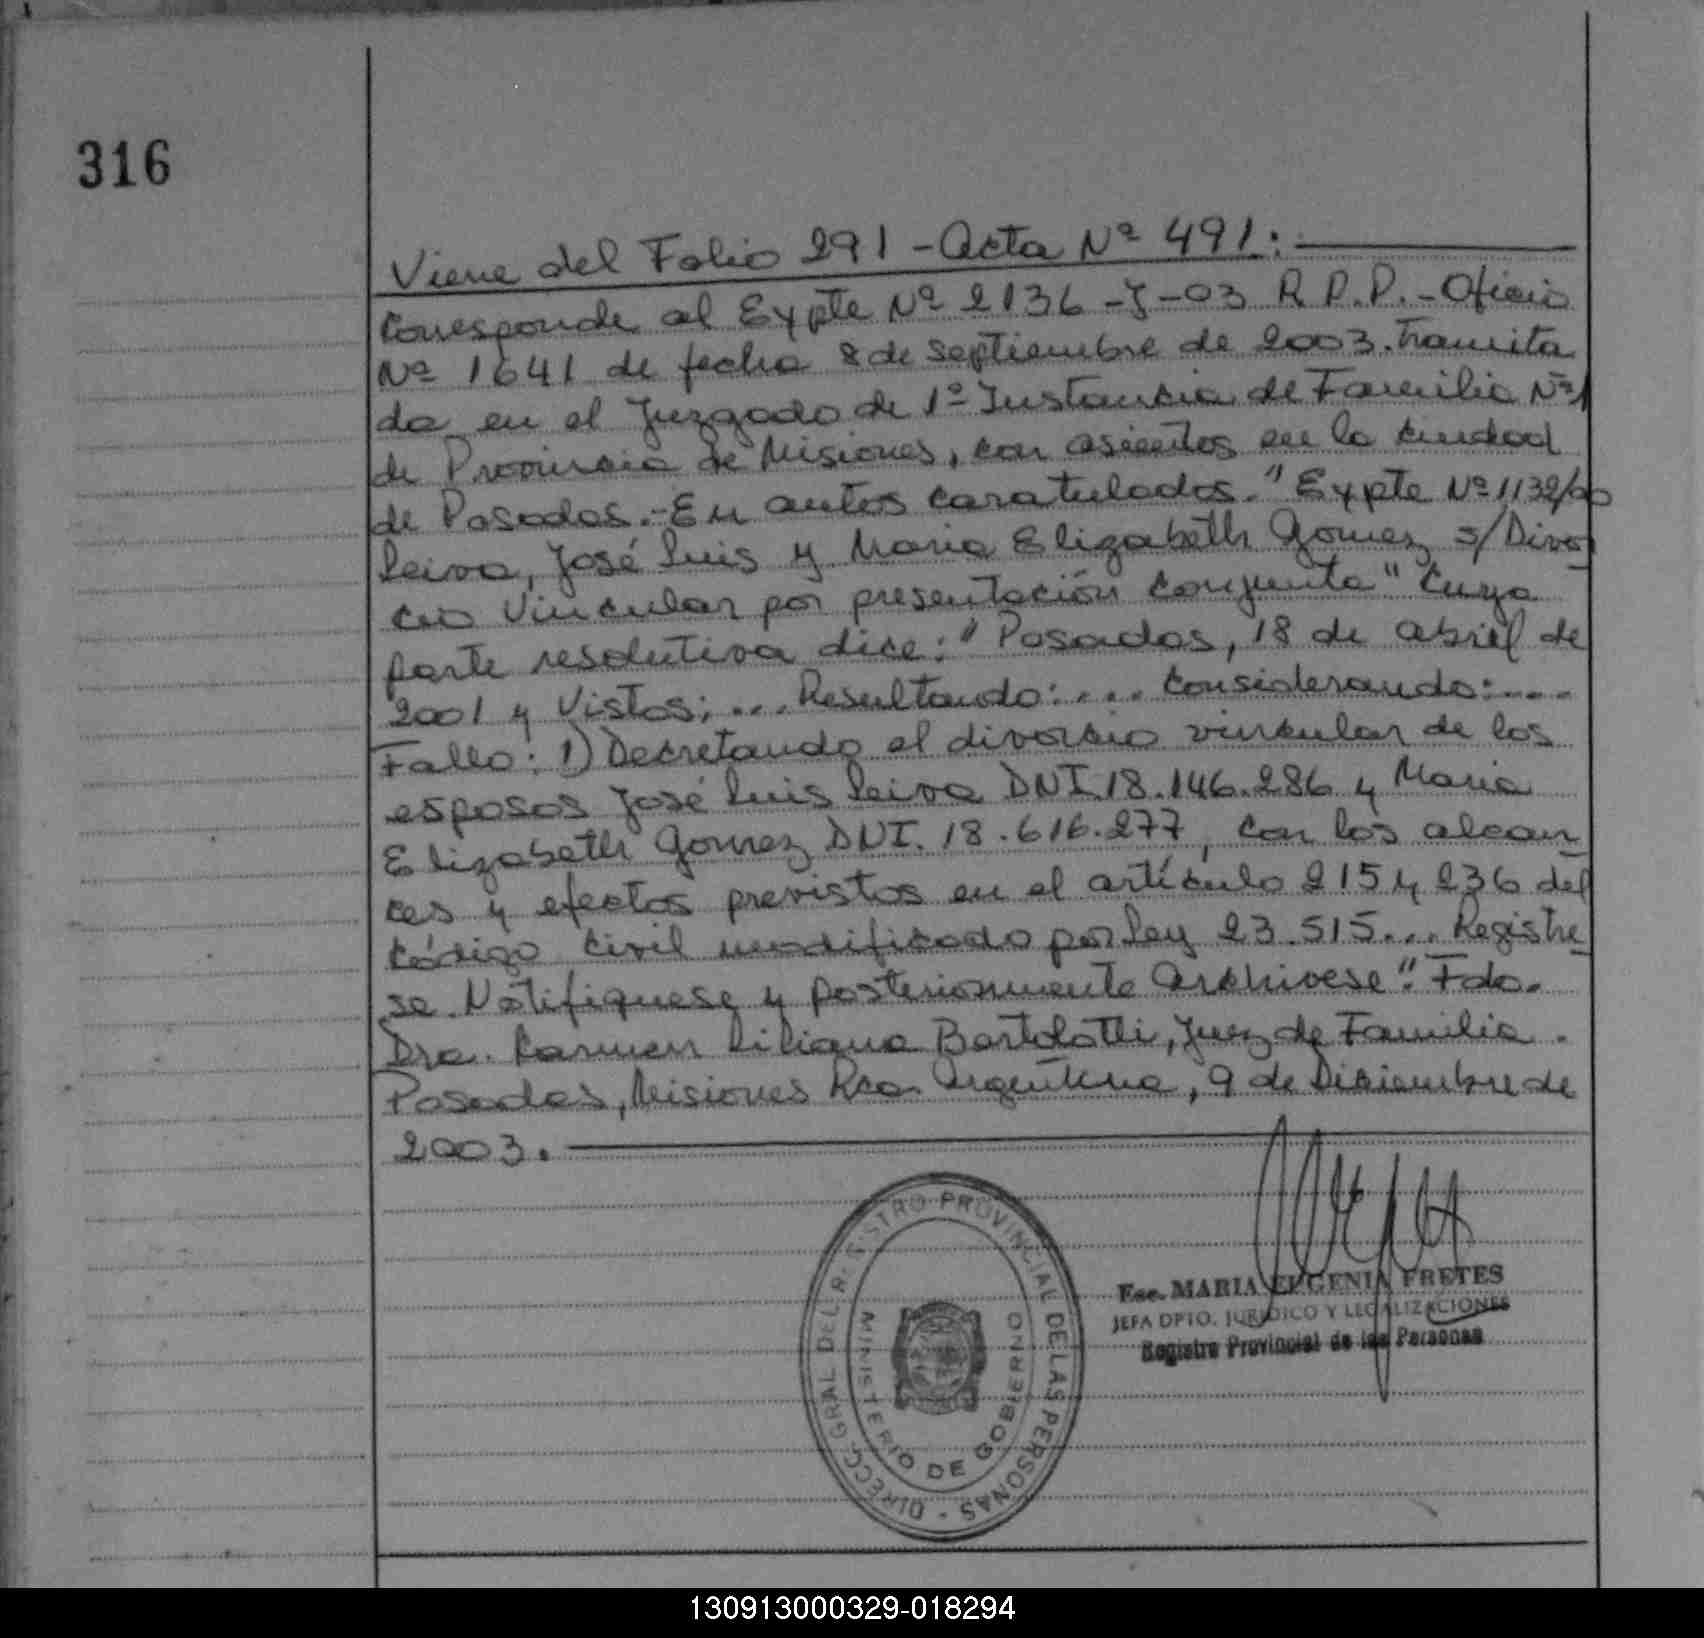 316
Viene del Folio 291 - Acta Nº 491:
Corresponde al Expte Nº 2136 - J - 03 R.P.P. - Oficio
Nº 1641 de fecha 8 de septiembre de 2003. tramita
da en el Juzgado de 1º Instancia de Familia Nº 1
de Provincia de Misiones, con asientos en la ciudad
de Posadas.- En autos caratulados. "Expte Nº 1132/00
Leiva, José Luis y Maria Elizabeth Gomez s/Divor
cio Vincular por presentación conjunta" Cuya
parte resolutiva dice: "Posadas, 18 de abril de
2001 y Vistos; ... Resultando: .... Considerando: ....
Fallo: 1) Decretando el divorcio vincular de los
esposos José Luis Leiva DNI. 18.146.286 y Maria
Elizabeth Gomez DNI. 18.616.277, con los alcan
ces y efectos previstos en el artículo 215 y 236 del
Código Civil modificado por Ley 23.515... Registre
se. Notifiquese y posteriormente archivese". Fdo.
Dra. Carmen Liliana Bartolotti, Juez de Familia.
Posadas, Misiones Rca. Argentina, 9 de Diciembre de
2003.
DIRECC. GRAL DEL REGISTRO PROVINCIAL DE LAS PERSONAS -
MINISTERIO DE GOBIERNO
Esc. MARIA EUGENIA FRETES
JEFA DPTO. JURIDICO Y LEGALIZACIONES
Registro Provincial de las Personas
130913000329-018294